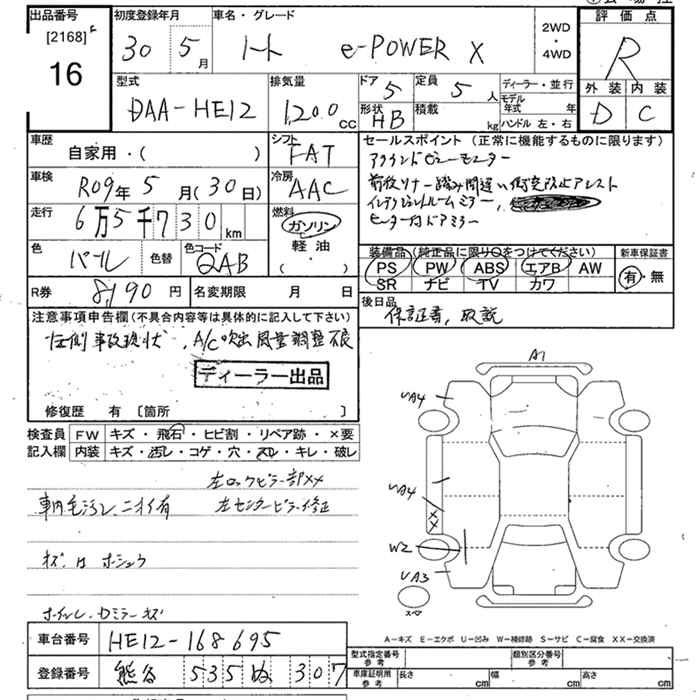 出品番号 初度登録年月 車名・グレード 2WD 評価点
[2168]
16 30 5月 ノート e-POWER X ・4WD R
型式 排気量 ドア 5 定員 5人 ディーラー・並行 外装 内装
DAA-HE12 1,200cc 形状 HB 積載 kg モデル年式 年 D C
ハンドル 左・右
車歴 シフト セールスポイント(正常に機能するものに限ります)
自家用・( ) FAT アラウンドビューモニター
車検 R09年5月(30日) 冷房 AAC 前後ソナー 踏み間違い衝突防止アシスト
走行 6万5千730km 燃料 ガソリン インテリジェントルームミラー、
軽油 ・( ) ヒーター付ドアミラー
色 パール 色替 色コード QAB 装備品(純正品に限り○をつけてください) 新車保証書
PS PW ABS エアB AW 有・無
SR ナビ TV カワ
R券 8,190円 名変期限 月 日 後日品
保証書, 取説
注意事項申告欄(不具合内容等は具体的に記入して下さい)
左側事故現状、A/C吹出風量調整不良
ディーラー出品
修復歴 有 [箇所 ]
検査員 FW キズ・飛石・ヒビ割・リペア跡・×要
記入欄 内装 キズ・汚レ・コゲ・穴・スレ・キレ・破レ
左ロックピラー部XX
車内毛汚レ、ニオイ有 左センターピラー修正
キズ
A1
UA4
UA4
XX
W2
UA3
スペア
A-キズ E-エクボ U-凹み W-補修跡 S-サビ C-腐食 XX-交換済
車台番号 HE12-168695
登録番号 熊谷 535 ぬ 307
型式指定番号 参考 類別区分番号 参考
車庫証明用 参考 長さ cm 幅 cm 高さ cm